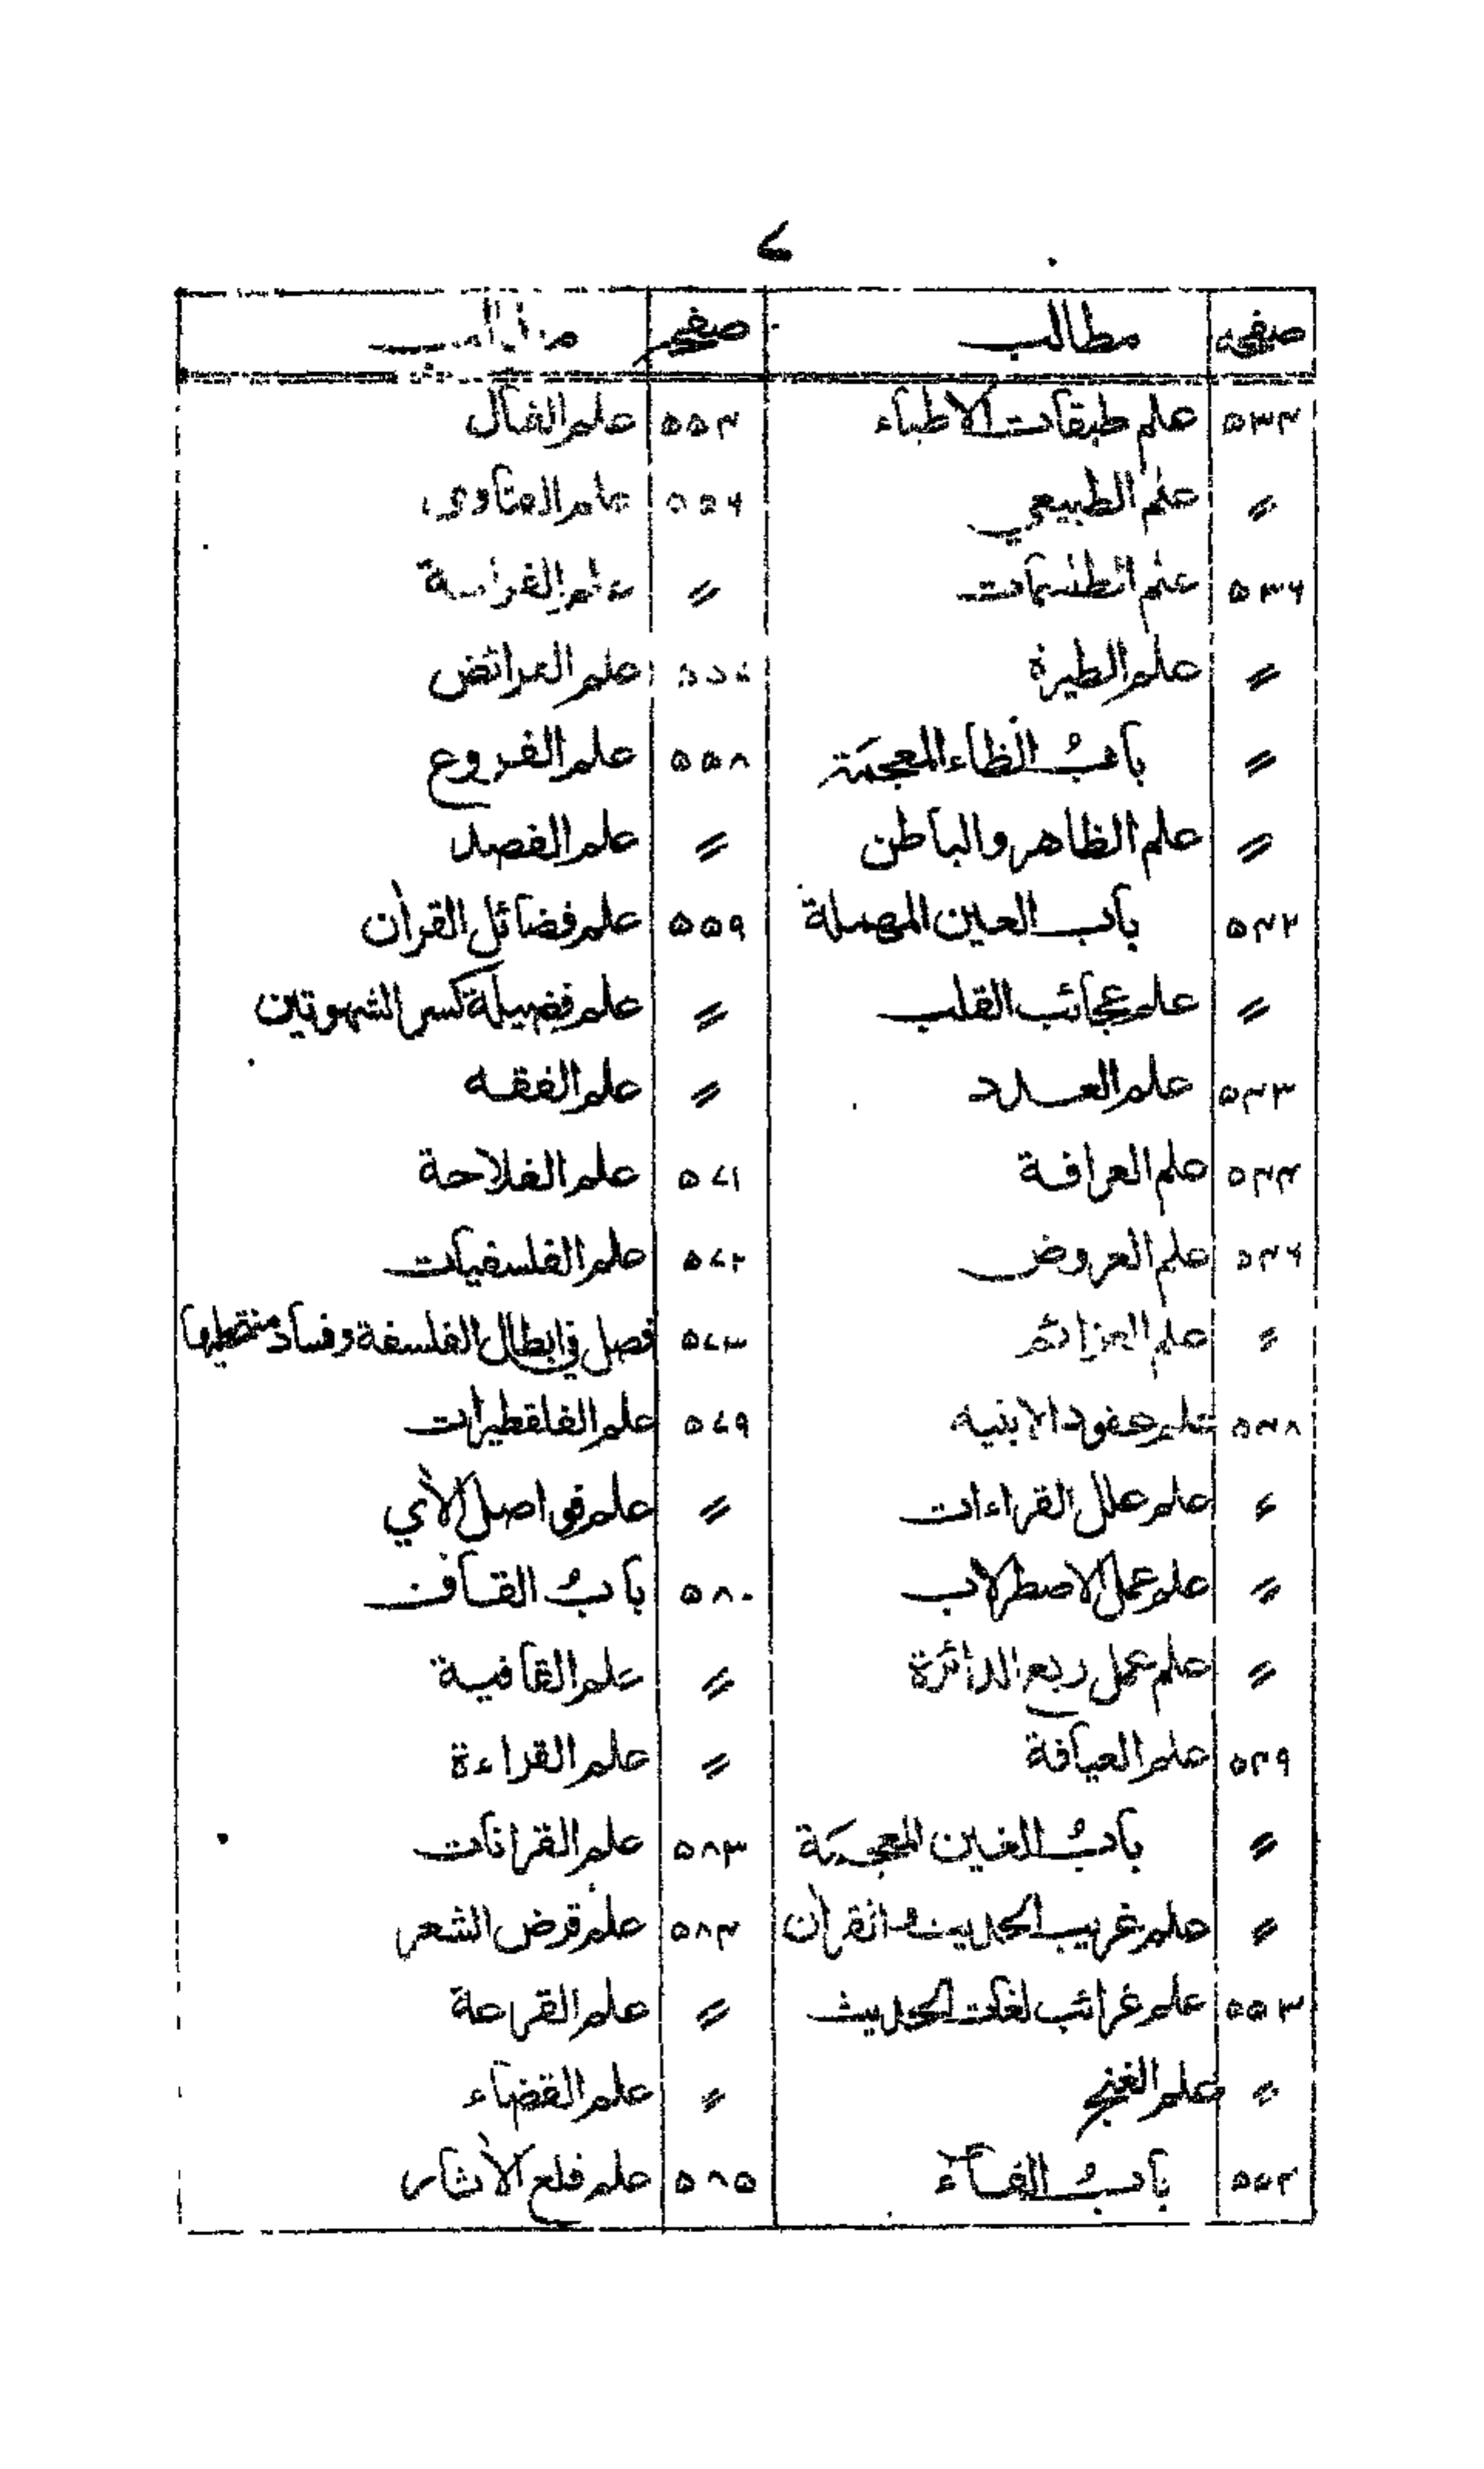 ۷
صفحه مطالب صفحه مطالب
۵۳۴ علم طبقات الاطباء ۵۵۴ علم الفال
〃 علم الطبيعي ۵۵۶ علم الفتاوى
۵۳۶ علم الطلسمات 〃 علم الفراسة
〃 علم الطيرة ۵۵۷ علم الفرائض
〃 بابُ الظاء المعجمة ۵۵۸ علم الفروع
〃 علم الظاهر والباطن 〃 علم الفصد
۵۴۲ باب العين المهملة ۵۵۹ علم فضائل القرأن
〃 علم عجائب القلب 〃 علم فضيلة كسر الشهوتين
۵۴۳ علم العدد 〃 علم الفقه
۵۴۴ علم العرافة ۵۷۱ علم الفلاحة
۵۴۶ علم العروض ۵۷۲ علم الفلسفيات
〃 علم العزائم ۵۷۳ فصل في ابطال الفلسفة وفساد
۵۴۸ علم عقود الابنيه ۵۷۹ علم الفلقطيرات
〃 علم علل القراءات 〃 علم فواصل الأي
〃 علم عمل الاصطرلاب ۵۸۰ بابُ القاف
〃 علم عمل ربع الدائرة 〃 علم القافية
۵۴۹ علم العيافة 〃 علم القراءة
〃 بابُ الغين المعجمة ۵۸۳ علم القرانات
〃 علم غريب الحديث والقرأن ۵۸۴ علم قرض الشعر
۵۵۳ علم غرائب لغات الحديث 〃 علم القرعة
〃 علم الغنج 〃 علم القضاء
۵۵۴ بابُ الفاء ۵۸۵ علم قلع الأثار